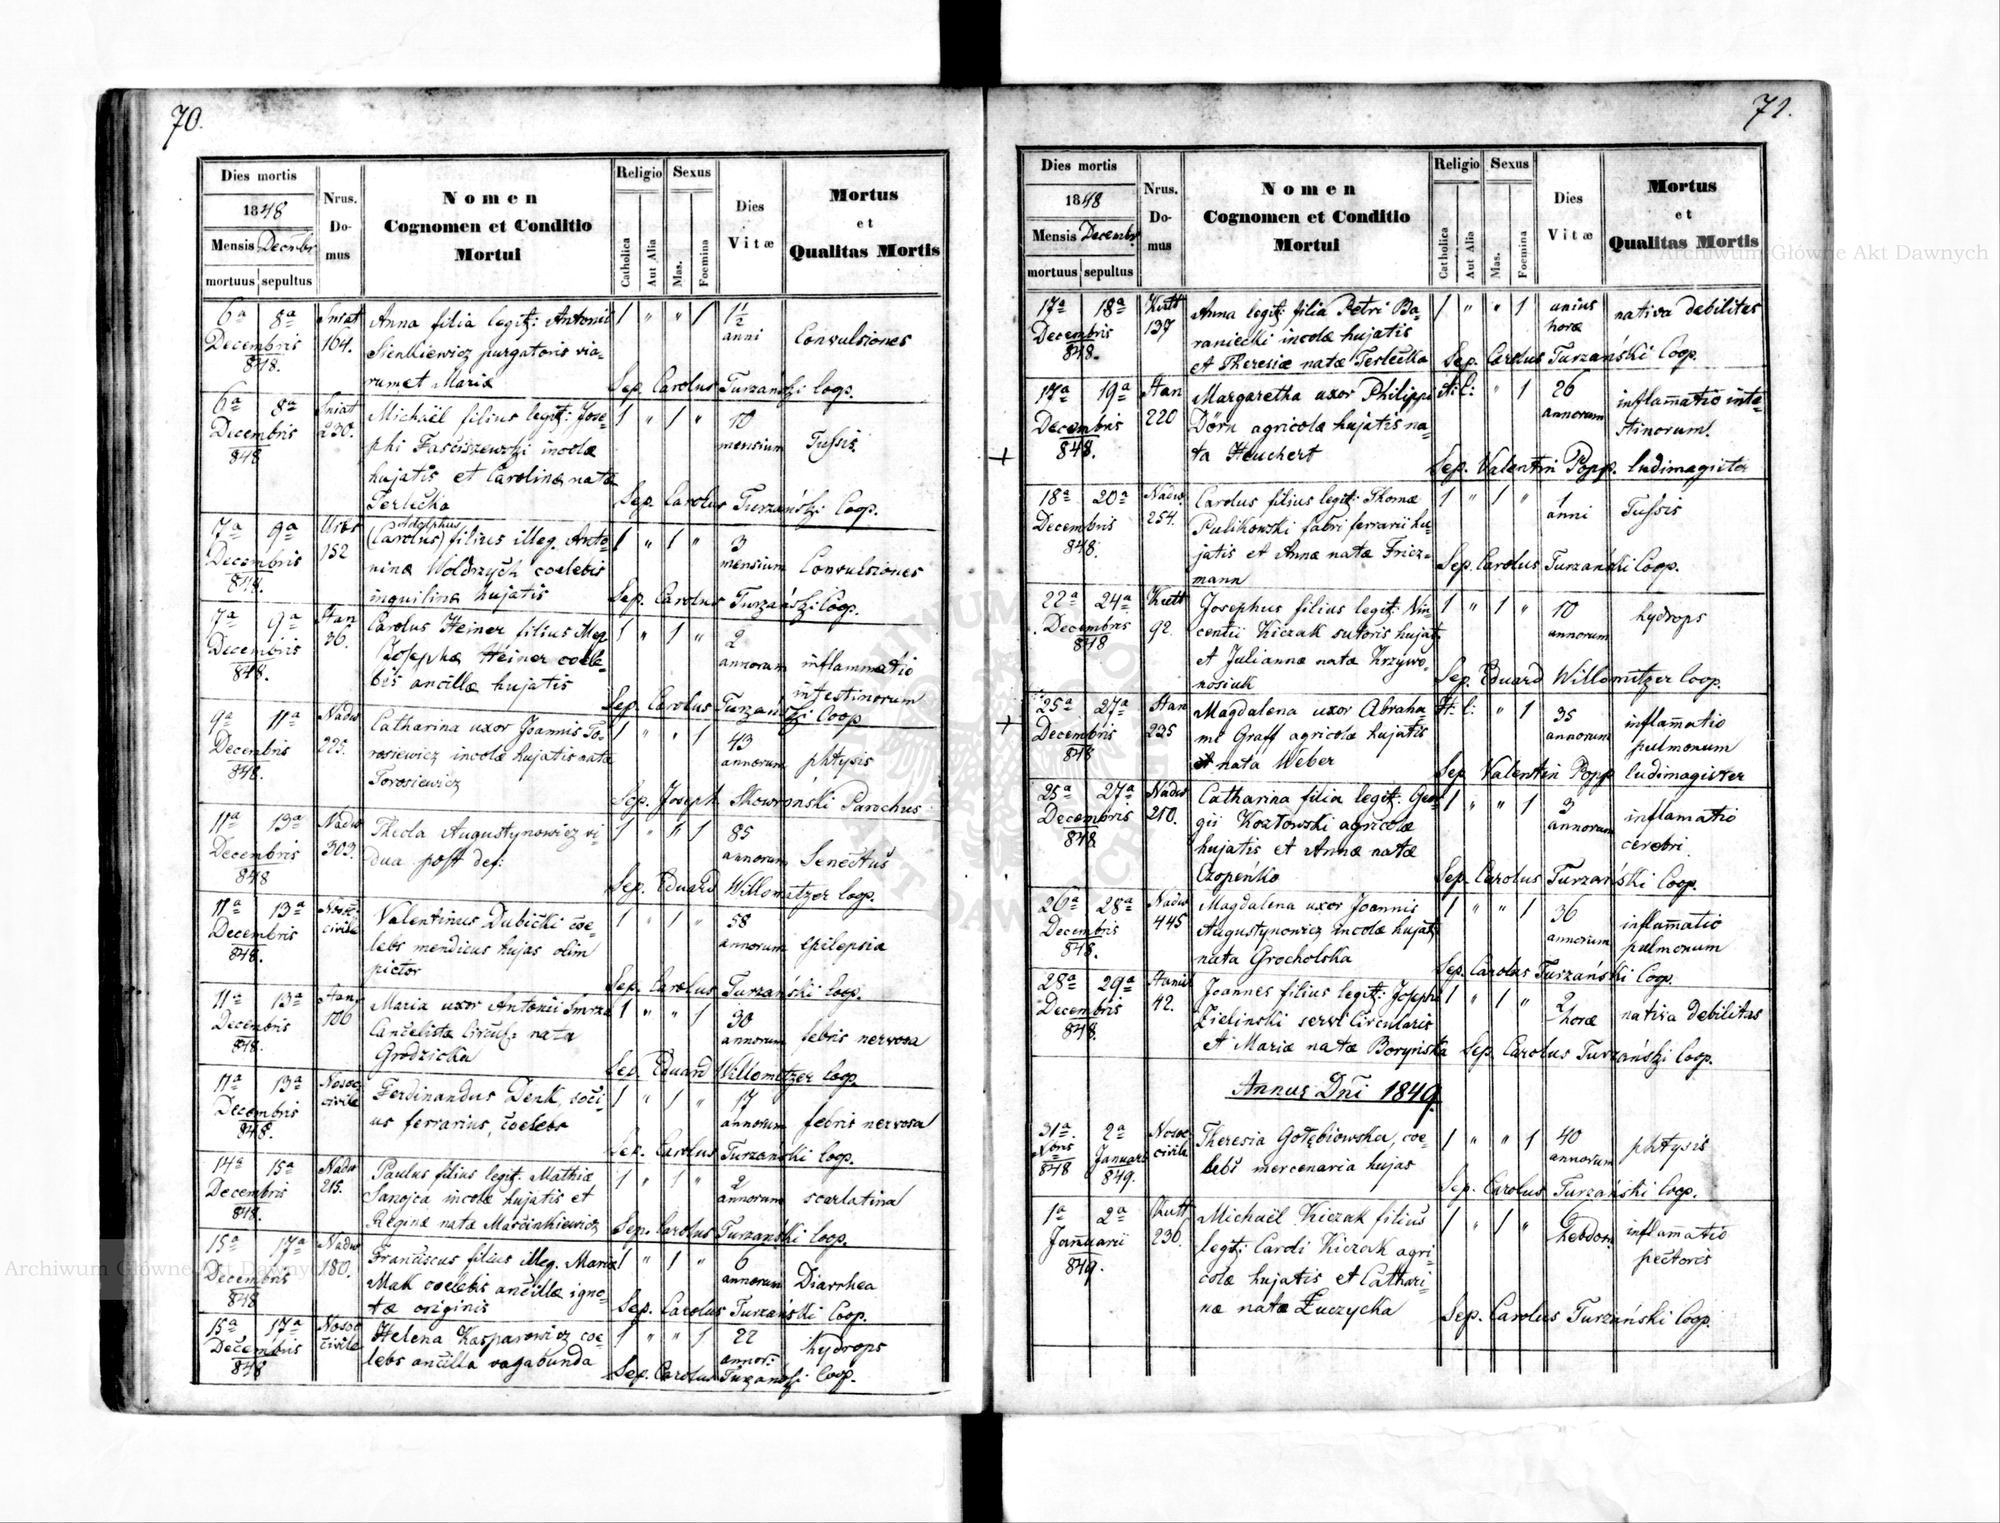 70.
Dies mortis
1848
Mensis Decmbr
mortuus sepultus
Nrus. Do- mus
Nomen
Cognomen et Conditio
Mortui
Religio
Catholica
Aut Alia
Sexus
Mas.
Foemina
Dies
Vitæ
Mortus
et
Qualitas Mortis
6a 8a Sniat Anna filia legit: Antonii 1 " " 1 1½
Decembris 164. Sienkiewicz purgatoris via- anni Convulsiones
848. rum et Mariæ Sep. Carolus Turzański Coop.
6a 8a Sniat Michaël filius legit: Jose- 1 " 1 " 10
Decembris 230. phi Fasciszewski incolæ mensium Tussis.
848 hujatis et Carolinæ natæ
Terlecka Sep. Carolus Turzański Coop.
7a 9a 152 Adolphus
(Carolus) filius illeg. Anto- 1 " 1 " 3
Decembris ninæ Woldrzych coelebis mensium Convulsiones
848. inquilinæ hujatis Sep. Carolus Turzański Coop.
7a 9a Stan 36. Carolus Heiner filius illeg. 1 " 1 " 2
Decembris Josephæ Heiner coele- annorum inflammatio
848. bis ancillæ hujatis intestinorum
Sep. Carolus Turzański Coop
9a 11a Nadw Catharina uxor Joannis To- 1 " " 1 43
Decembris 225. rosiewicz incolæ hujatis nata annorum phtysis
848. Torosiewicz Sep. Joseph Skowroński Parochus
11a 13a Nadw Thecla Augustynowicz vi- 1 " " 1 85
Decembris 303. dua post def: annorum Senectus
848 Sep. Eduard Willomitzer Coop.
11a 13a Nosoc. Valentinus Dubicki coe- 1 " 1 " 58
Decembris civile lebs mendicus hujas olim annorum epilepsia
848. pictor Sep. Carolus Turzański Coop.
11a 13a Stan. Maria uxor Antonii Smrza 1 " " 1 30
Decembris 106 Cancelistæ Circul: nata annorum febris nervosa
848. Grodzicka Sep. Eduard Willomitzer Coop.
11a 13a Nosoc Ferdinandus Denk, soci- 1 " 1 " 17
Decembris civile us ferrarius, coelebs annorum febris nervosa
848. Sep. Carolus Turzański Coop.
14a 15a Nadw Paulus filius legit: Mathiæ 1 " 1 " 2
Decembris 215. Sanojca incolæ hujatis et annorum scarlatina
848. Reginæ natæ Marciakiewicz Sep. Carolus Turzański Coop.
15a 17a Nadw Franciscus filius illeg. Mariæ 1 " 1 " 6
Decembris 180. Mak coelebis ancillæ igno- annorum Diarrhea
848 tæ originis Sep. Carolus Turzański Coop.
15a 17a Nosoc Helena Kasparowicz coe- 1 " " 1 22
Decembris civile lebs ancilla vagabunda annor: hydrops
848 Sep. Carolus Turzański Coop.
71.
Dies mortis
1848
Mensis Decembr
mortuus sepultus
Nrus. Do- mus
Nomen
Cognomen et Conditio
Mortui
Religio
Catholica
Aut Alia
Sexus
Mas.
Foemina
Dies
Vitæ
Mortus
et
Qualitas Mortis
17a 18a Kutt Anna legit: filia Petri Ba- 1 " " 1 unius nativa debilitas
Decembris 137 raniecki incolæ hujatis horæ
848. et Theresiæ natæ Terlecka Sep. Carolus Turzański Coop.
17a 19a Stan Margaretha uxor Philippi H: C: " 1 26 inflamatio inte-
Decembris 220 Dörn agricolæ hujatis na- annorum stinorum.
848. ta Heuchert Sep. Valentin Popp. ludimagister
18a 20a Nadw. Carolus filius legit: Thomæ 1 " 1 " 1 Tussis
Decembris 254. Pulikowski fabri ferrarii hu- anni
848. jatis et Annæ natæ Friez- Sep. Carolus Turzański Coop.
mann
22a 24a Kutt Josephus filius legit: Vin- 1 " 1 " 10 hydrops
Decembris 92. centii Kiczak sutoris hujat: annorum
848 et Juliannæ natæ Krzywo-
nosiuk Sep. Eduard Willomitzer Coop.
25a 27a Stan Magdalena uxor Abraha H: C: " 1 35 inflamatio
Decembris 235 mi Graff agricolæ hujatis annorum pulmonum
848 nata Weber Sep. Valentin Popp ludimagister
25a 27a Nadw Catharina filia legit: Geor 1 " " 1 3 inflamatio
Decembris 210. gii Kozłowski agricolæ annorum cerebri
848. hujatis et Annæ natæ
Czopenko Sep. Carolus Turzański Coop.
26a 28a Nadw Magdalena uxor Joannis 1 " " 1 36 inflamatio
Decembris 445 Augustynowicz incolæ hujat: annorum pulmonum
848. nata Grocholska Sep. Carolus Turzański Coop.
28a 29a 42. Joannes filius legit: Josephi 1 " 1 " 2 nativa debilitas
Decembris Zielinski servi Circularis horæ
848. et Mariæ natæ Boryńska Sep. Carolus Turzański Coop.
Annus Dni 1849
31a 2a Nosoc Theresia Gołębiowska, coe- 1 " " 1 40 phtysis
Xbris Januar civile lebs mercenaria hujas annorum
848 849. Sep. Carolus Turzański Coop.
1a 2a Kutt Michaël Kiczak filius 1 " 1 " inflamatio
Januarii 230. legit: Caroli Kiczak agri- hebdom: pectoris
849. colæ hujatis et Cathari-
næ natæ Łuczycka Sep. Carolus Turzański Coop.
Archiwum Główne Akt Dawnych
Archiwum Główne Akt Dawnych